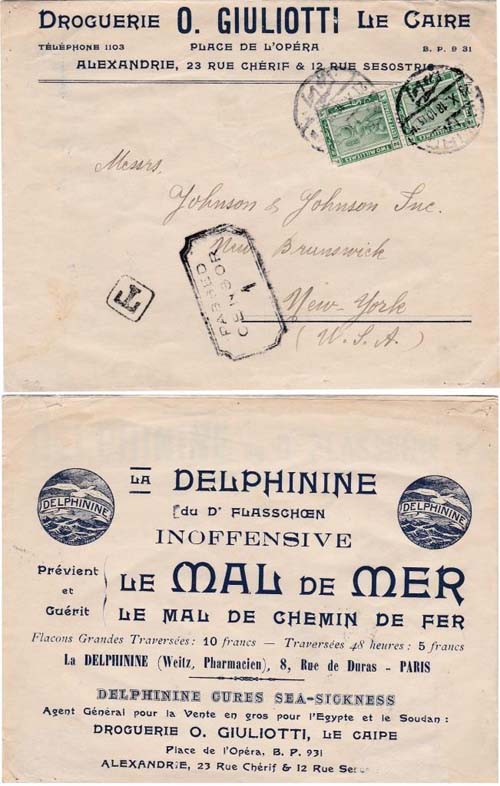 DROGUERIE O. GIULIOTTI LE CAIRE
TÉLÉPHONE 1103 PLACE DE L'OPÉRA B. P. 931
ALEXANDRIE, 23 RUE CHÉRIF & 12 RUE SESOSTRIS
TWO MILLIEMES
Messrs.
Johnson & Johnson Inc.
New Brunswick
New-York
(U.S.A.)
PASSED
CENSOR
T
LA DELPHININE
du Dr FLASSCHŒN
INOFFENSIVE
DELPHININE
DELPHININE
Prévient
et
Guérit
LE MAL DE MER
LE MAL DE CHEMIN DE FER
Flacons Grandes Traversées: 10 francs — Traversées 48 heures: 5 francs
La DELPHININE (Weitz, Pharmacien), 8, Rue de Duras - PARIS
DELPHININE CURES SEA-SICKNESS
Agent Général pour la Vente en gros pour l'Egypte et le Soudan:
DROGUERIE O. GIULIOTTI, LE CAIPE
Place de l'Opéra, B. P. 931
ALEXANDRIE, 23 Rue Chérif & 12 Rue